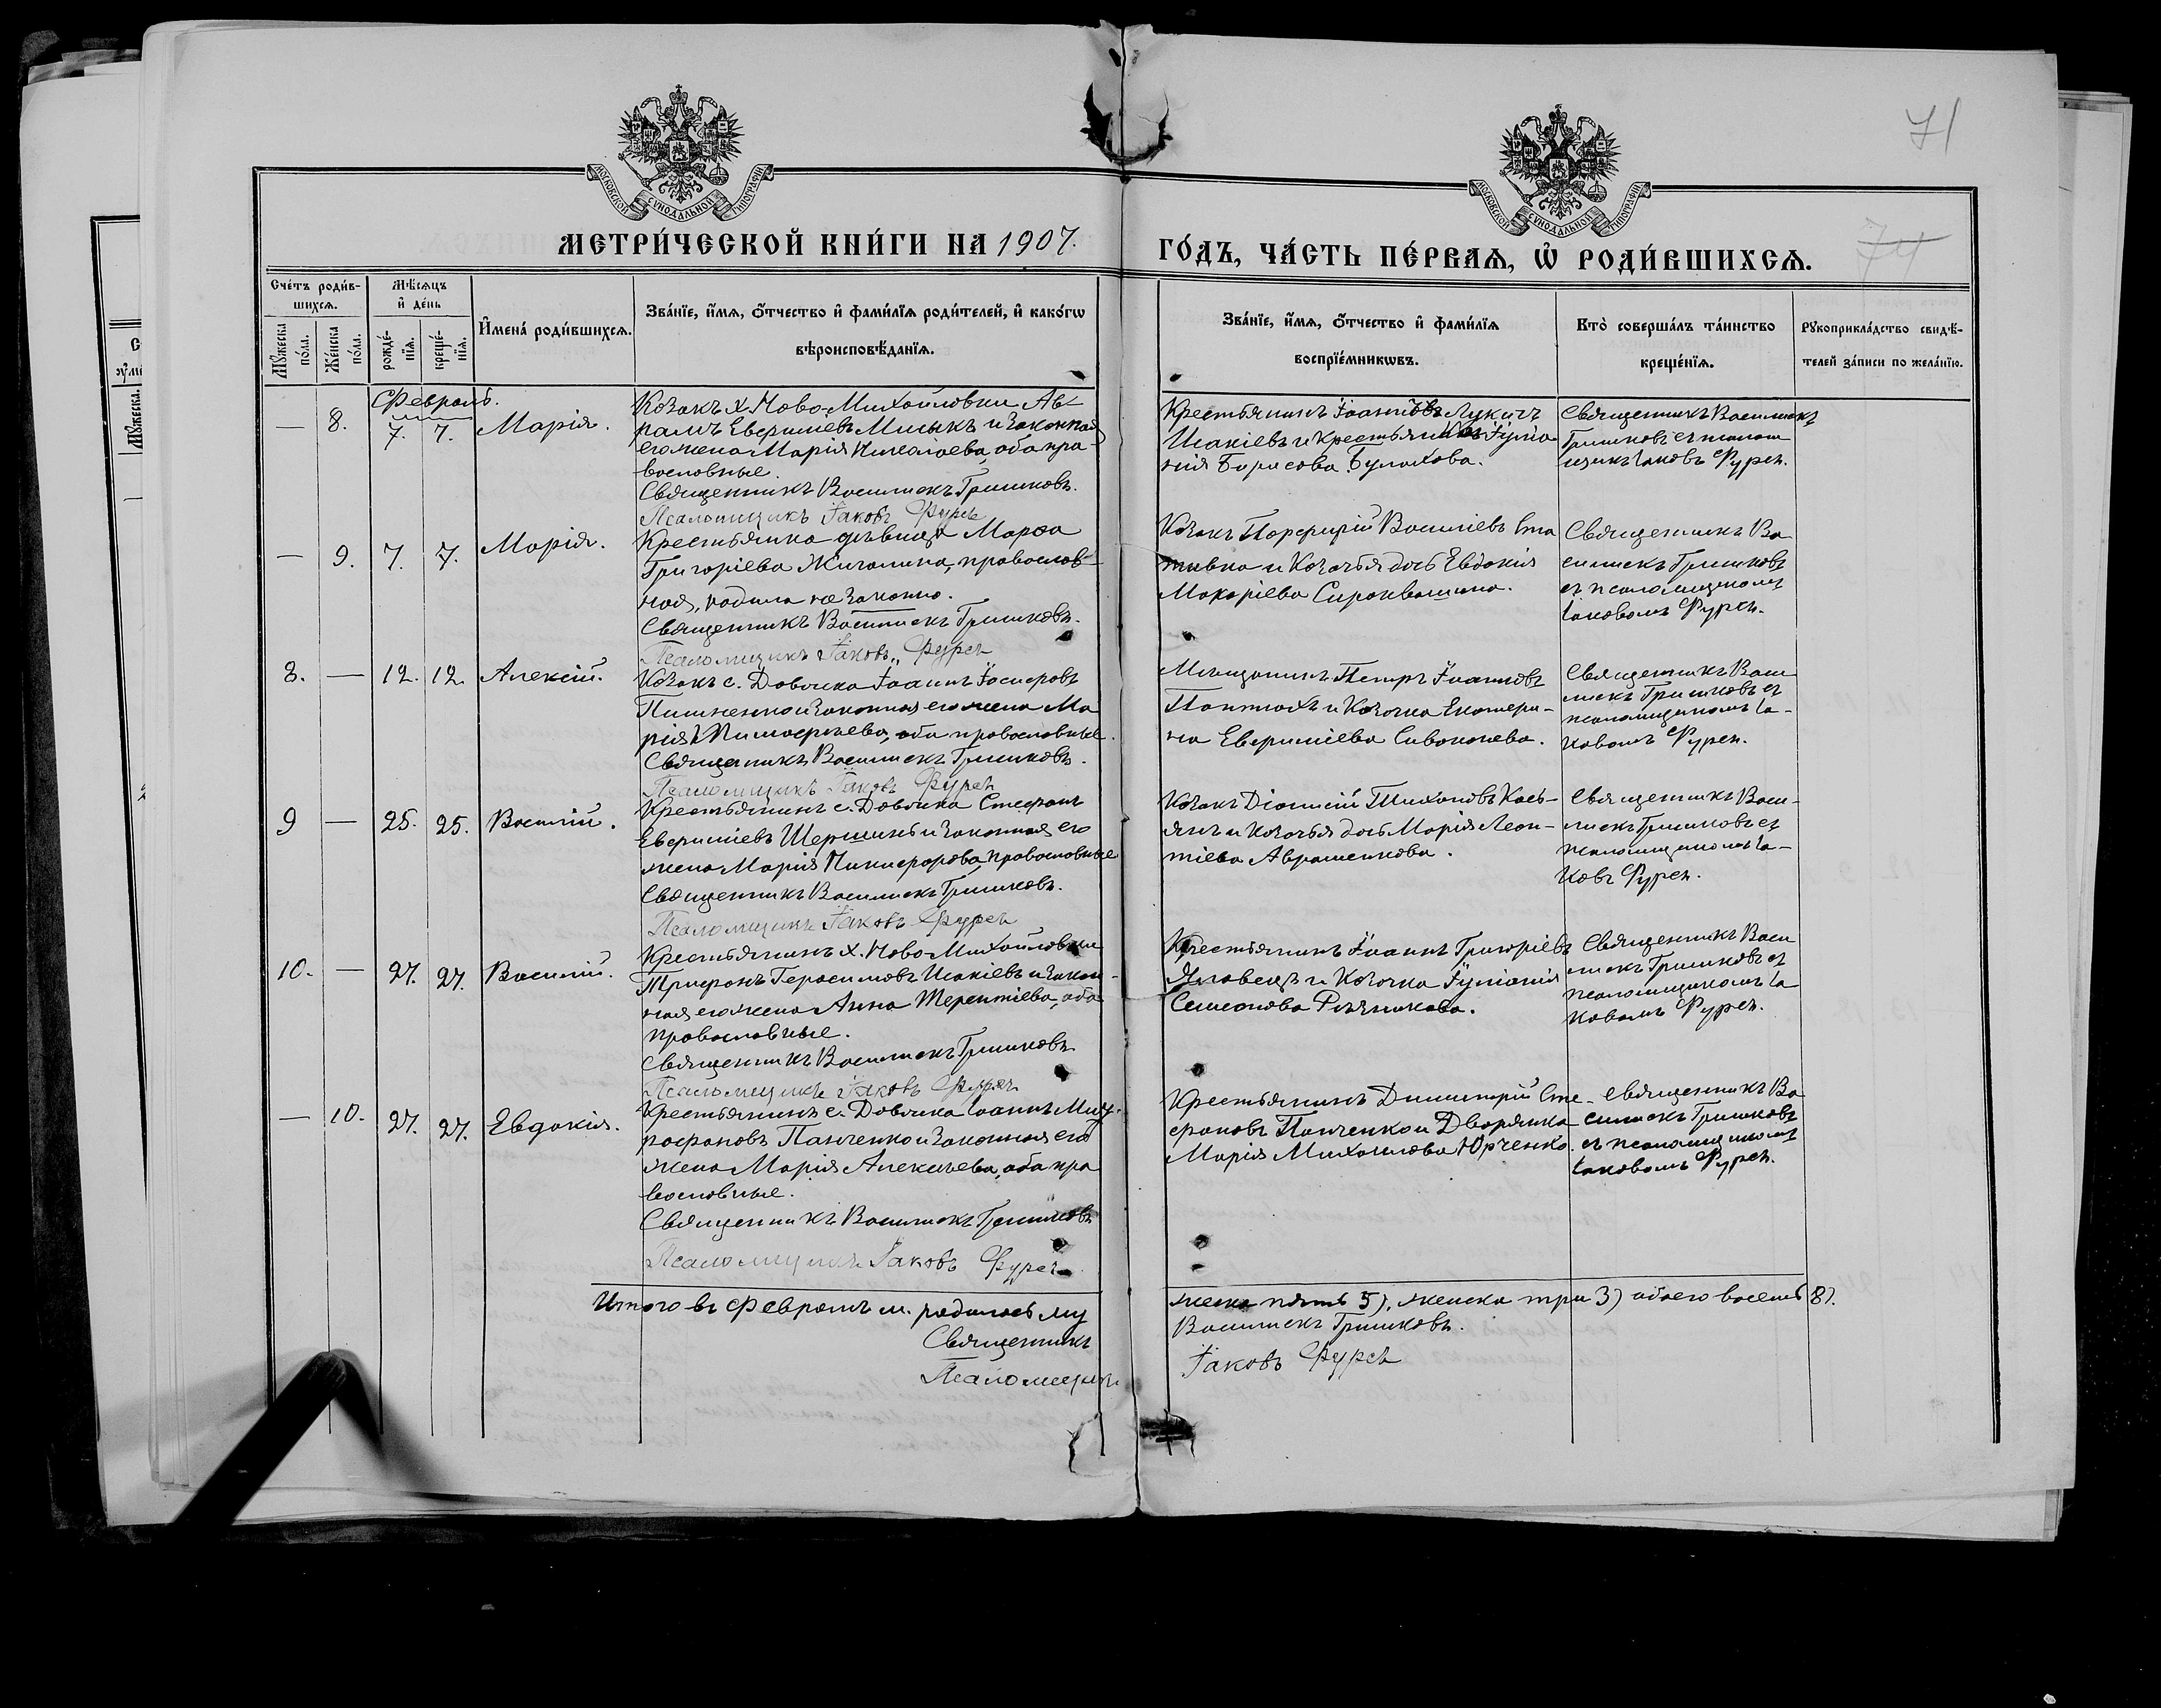 71
74
МОСКОВСКОЙ СУНОДАЛЬНОЙ ТИПОГРАФІИ
МОСКОВСКОЙ СУНОДАЛЬНОЙ ТИПОГРАФІИ
МЕТРИ́ЧЕСКОЙ КНИ́ГИ НА 1907. ГО́ДЪ, ЧА́СТЬ ПЕ́РВАѦ, Ѡ҆ РОДИ́ВШИХСѦ.
Сче́тъ роди́в-
шихсѧ.
Мѹ́жеска по́ла.
Же́нска по́ла.
Мѣ́сѧцъ
и҆ де́нь
рожде́-
нїѧ.
креще́-
нїѧ.
И҆мена̀ роди́вшихсѧ.
Зва́нїе, и҆́мѧ, ѻ҆́тчество и҆ фами́лїѧ роди́телей, и҆ како́гѡ
вѣроисповѣ́данїѧ.
Зва́нїе, и҆́мѧ, ѻ҆́тчество и҆ фами́лїѧ
воспрїе́мникѡвъ.
Кто̀ соверша́лъ та́инство
креще́нїѧ.
Рѹкоприкла́дство свидѣ́-
телей за́писи по жела́нїю.
Февраль.
— 8. 7. 7. Марія.
Козакъ х. Ново-Михайловки Ав-
рамъ Евфиміевъ Мисыкъ и законная
его жена Марія Николаева, оба пра-
вославные.
Священникъ Василискъ Гришковъ.
Псаломщикъ Іаковъ Фурсъ
Крестьянинъ Іоаннъ Лукичъ
Исакіевъ и крестьянка Іулiа
нія Борисова Булахова.
Священникъ Василискъ
Гришковъ съ псалом
щикъ Іаковъ Фурсъ.
— 9. 7. 7. Марія.
Крестьянка дѣвица Марѳа
Григоріева Жигалина, православ-
ная, родила незаконно.
Священникъ Василискъ Гришковъ.
Псаломщикъ Іаковъ Фурсъ
Козакъ Порфирій Василіевъ Ста
и Козачья дочь Евдокія
Макаріева Сироквашина.
Священникъ Ва
силискъ Гришковъ
съ псаломщикомъ
Іаковомъ Фурсъ.
8. — 12. 12. Алексій.
Козакъ с. Довжика Іоаннъ Іосифовъ
Пилипенко и законная его жена Ма
рія Тимофеева, оба православные.
Священникъ Василискъ Гришковъ.
Псаломщикъ Іаковъ Фурсъ
Мѣщанинъ Петръ Іоанновъ
и Козачка Екатери-
на Евфиміева Сивоконева.
Священникъ Васи
лискъ Гришковъ съ
псаломщикомъ Іа-
ковомъ Фурсъ.
9 — 25. 25. Василій.
Крестьянинъ с. Довжика Стефанъ
Евфиміевъ Шершинъ и законная его
жена Марія Никифорова, православные
Священникъ Василискъ Гришковъ.
Псаломщикъ Іаковъ Фурсъ
Козакъ Діонисій Тихоновъ Кась-
янъ и козачья дочь Марія Леон-
тіева Авраменкова.
Священникъ Васи-
лискъ Гришковъ съ
псаломщикомъ Іа-
ковъ Фурсъ.
10. — 27. 27. Василій.
Крестьянинъ х. Ново-Михайловки
Трифонъ Герасимовъ Исакіевъ и закон-
ная его жена Анна Терентіева, оба
православные.
Священникъ Василискъ Гришковъ
Псаломщикъ Іаковъ Фурсъ
Крестьянинъ Іоаннъ Григоріевъ
Яловецъ и Козачка Іуліанія
Симеонова Рѣзникова.
Священникъ Васи
лискъ Гришковъ съ
псаломщикомъ Іа
ковомъ Фурсъ.
— 10. 27. 27. Евдокія.
Крестьянинъ с. Довжика Іоаннъ Мит-
рофановъ Панченко и законная его
жена Марія Алексѣева, оба пра
вославные.
Священникъ Василискъ Гришковъ
Псаломщикъ Іаковъ Фурсъ
Крестьянинъ Димитрій Сте-
фановъ Панченко и Дворянка
Марія Михаилова Юрченко.
Священникъ Ва
силискъ Гришковъ
съ псаломщикомъ
Іаковомъ Фурсъ.
Итого въ Февралѣ м. родилось му
жеска пять 5), женска три 3) обоего восемь 8).
Священникъ Василискъ Гришковъ.
Псаломщикъ Іаковъ Фурсъ